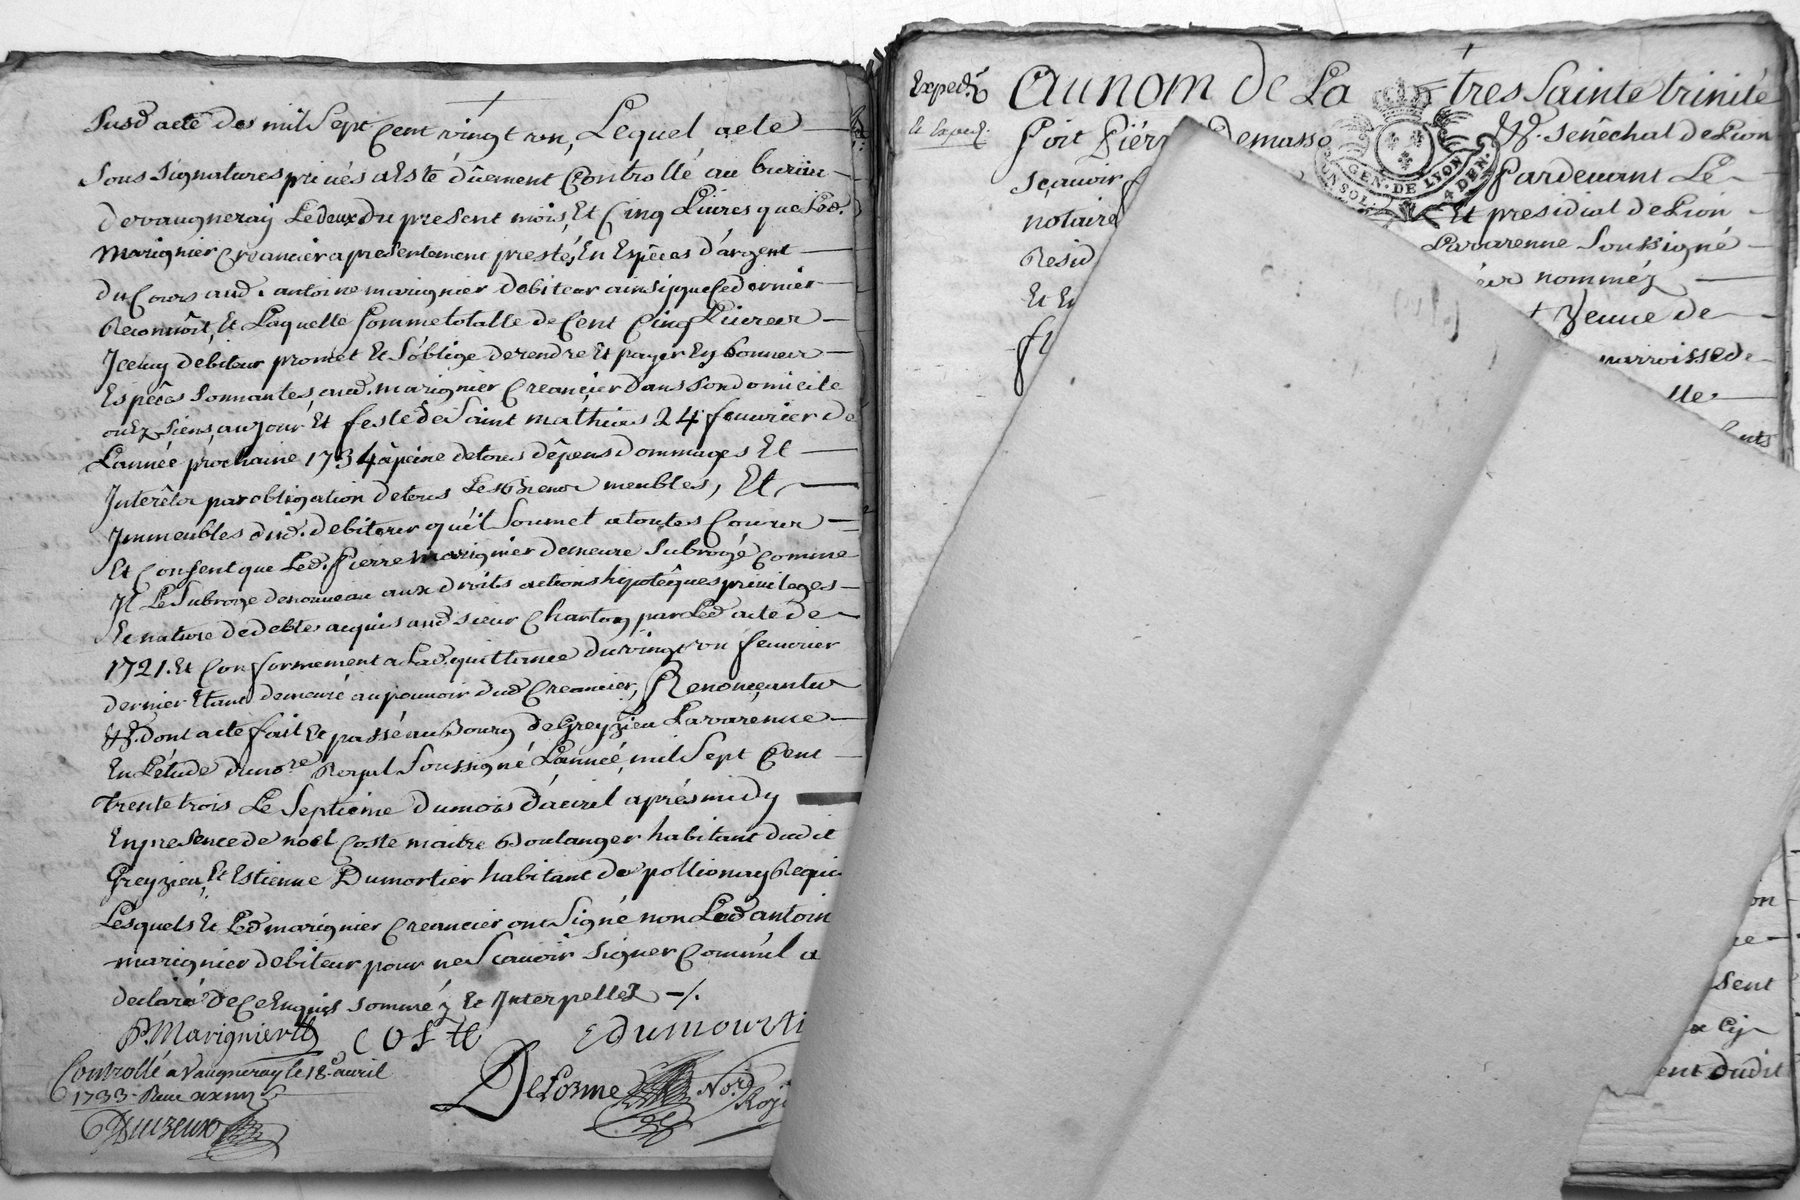 Susd acte des mil Sept Cent vingt un, Lequel acte
Sous signatures privés a Esté düement Controllé au bureau
devaugneray Le deux du present mois, Et Cinq Livres que Led.
Marignier Creancier a presentement presté, En Espèces d'argent
du Cours aud. antoine marignier debiteur ainsi que Ce dernier
Reconnoît, Et Laquelle Somme totalle de Cent Cinq Livres
Iceluy debiteur promet Et S'oblige de rendre Et payer En bonnes
Espèces Sonnantes, aud. marignier Creancier dans Son domicile
ou Ez Siens, au jour Et feste de Saint mathias 24 feuurier de
L'année prochaine 1734 à peine de tous dêpens dommages Et
Interêts par obligation de tous Ses Biens meubles, Et
Immeubles dud. debiteur qu'il Soumet a toutes Cours
Et Consent que Led. Pierre Marignier demeure Subrogé Comme
Il Le Subroge denouveau aux droits actions hipotêques privileges
Et nature de debtes acquis aud sieur Charton par Led acte de
1721. Et Conformement a Lad. quittance du vingt un feuurier
dernier Etant demeuré au pouvoir dud Creancier, Renonçant
&. dont acte fait Et passé au Bourg de Greyzieu Lavarenne
En L'étude du no.re Royal Soussigné L'année mil Sept Cent
trente trois Le Septieme du mois d'avril après midy
En presence de noël Coste maitre Boulanger habitant dudit
Greyzieu, Et Estienne Dumortier habitant de pollionay Requis
Lesquels Et Led marignier Creancier ont Signé non Led antoin
marignier debiteur pour ne Scauoir Signer Comm'il a
declaré de Ce Enquis Sommé z Et Interpellez -/.
P. Marignier COSTE Edumourti
Controllé a Vaugneray le 18.e avril
1733.
DeLorme No.re Roy
Exped.é Au nom de La tres Sainte trinité
Et Exped.
Soit Piérr Demasso &. Senêchal de Lion
Sçauoir Pardeuant Le
GEN. DE LYON 4 DEN.
notaire Et presidial de Lion
Resid Lavarenne Soussigné
Et En nomméz
Veuue de
parroisse de
lle
ents
on
re
sent
x Cy
ent dudit